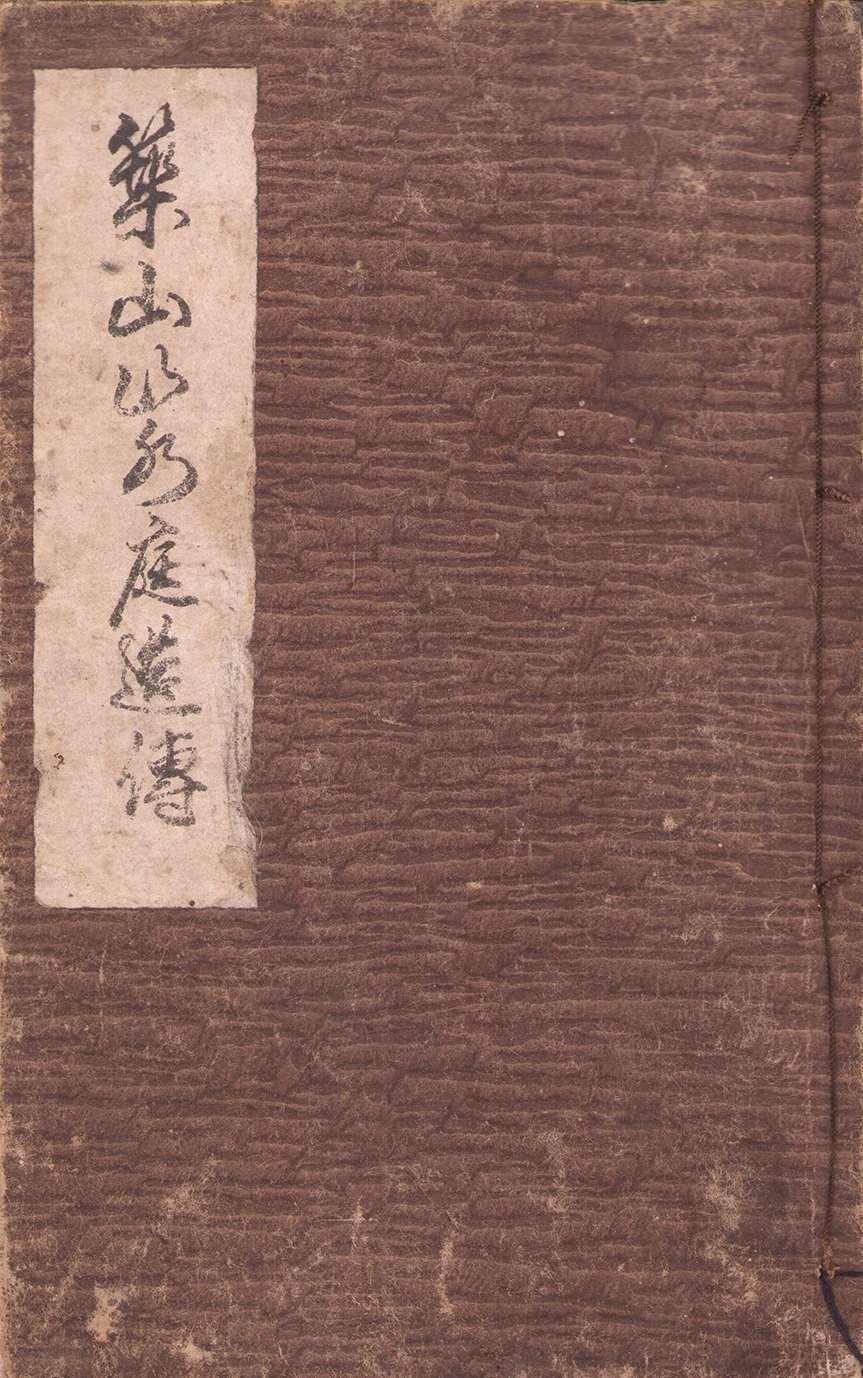 築山山水庭造傳